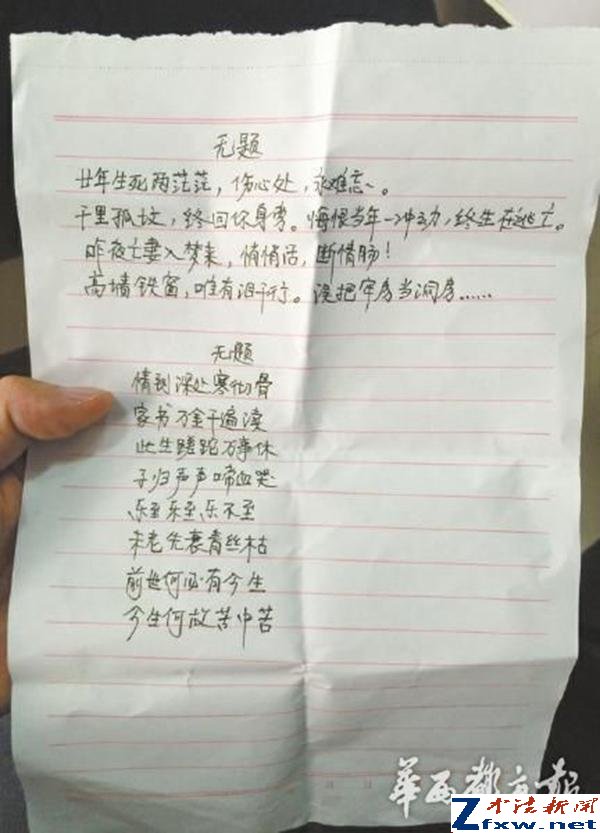 无题
廿年生死两茫茫，伤心处，永难忘。
千里孤坟，终回你身旁。悔恨当年一冲动，终生在逃亡。
昨夜亡妻入梦来，悄悄话，断情肠！
高墙铁窗，唯有泪千行。误把牢房当洞房……
无题
情到深处寒彻骨
家书万金千遍读
此生蹉跎万事休
子归声声啼血哭
乐至乐至乐不至
未老先衰青丝枯
前世何必有今生
今生何故苦中苦
华西都市报
Z 才法新闻
fxw.net